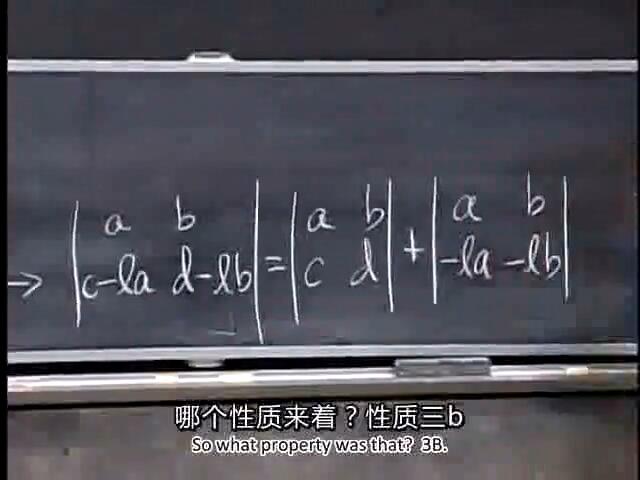 → | a b | = | a b | + | a b |
| c-la d-lb | | c d | | -la -lb |
哪个性质来着？性质三b
So what property was that? 3B.